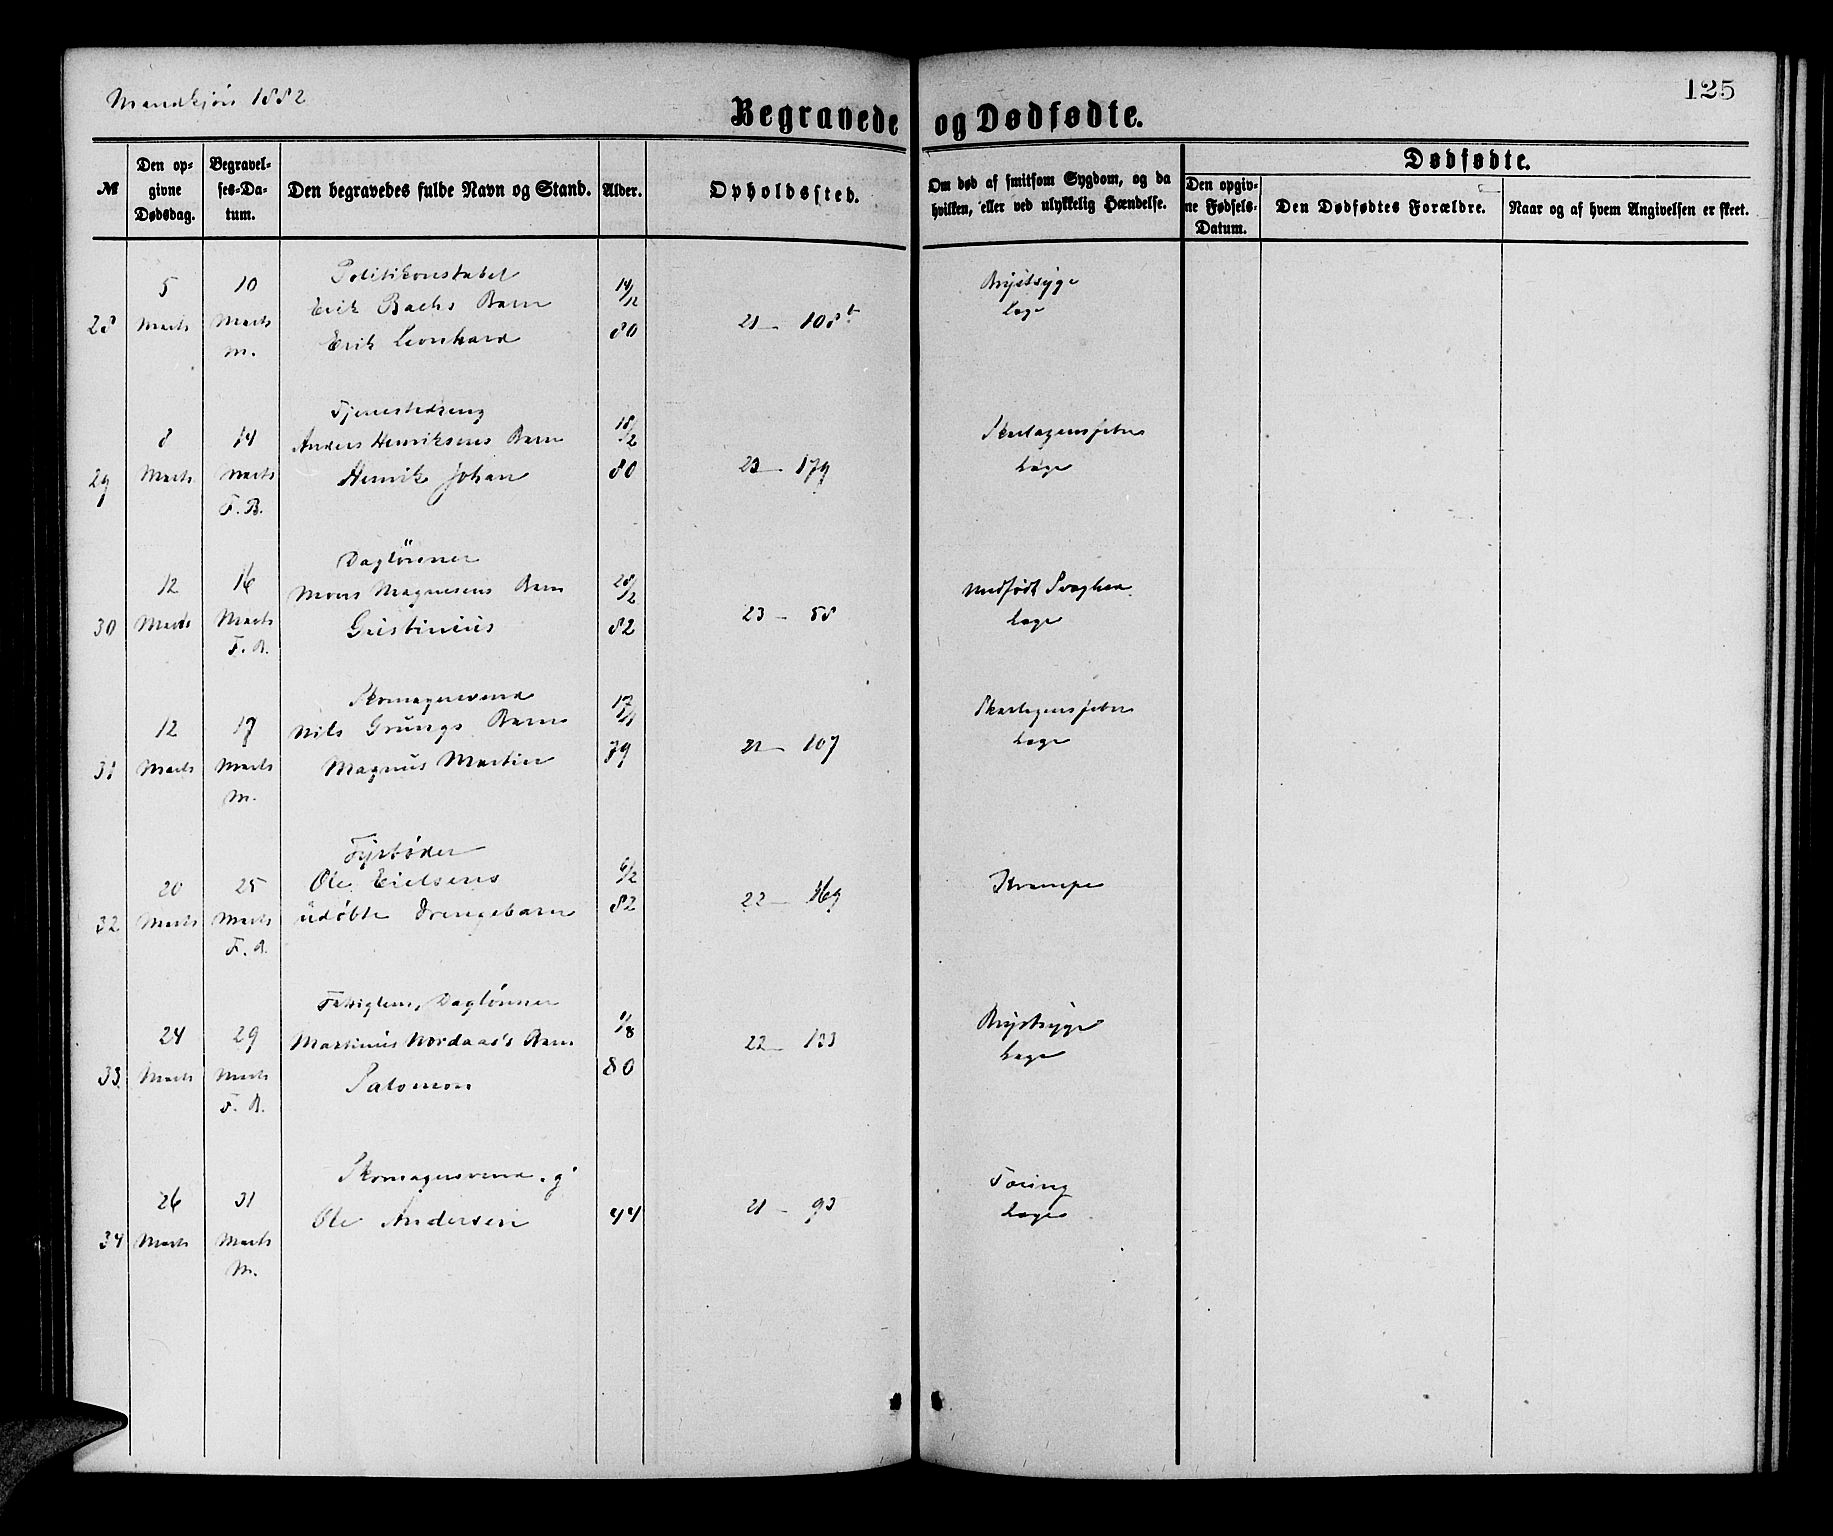 Mandkjøn 1882
125
Begravede og Dødfødte.
№
Den opgivne Dødsdag.
Begravelses-Datum.
Den begravedes fulde Navn og Stand.
Alder.
Opholdssted.
Om død af smitsom Sygdom, og da hvilken, eller ved ulykkelig Hændelse.
Dødfødte.
Den opgivne Fødsels-Datum.
Den Dødfødtes Forældre.
Naar og af hvem Angivelsen er skeet.
28
5 Marts
10 Marts M.
Politikonstabel
Erik Bachs Barn
Erik Leonhard
14/12 80
21 — 108b
Brystsyge
Læge
29
8 Marts
14 Marts F. B.
Tjenestedreng
Anders Henriksens Barn
Henrik Johan
80
23 — 179
Skarlagensfeber
Læge
30
12 Marts
16 Marts F. B.
Daglönner
Mons Magnesens Barn
Gustinius
82
23 — 58
Medfødt Svaghed
Læge
31
12 Marts
17 Marts M.
Skomagersvend
Nils Grungs Barn
Magnus Martin
79
21 — 107
Skarlagensfeber
Læge
32
20 Marts
25 Marts F. B.
Fyrbøder
Ole Eielsens
udøbte Drengebarn
6/2 82
22 — 169
Krampe
33
24 Marts
29 Marts F. B.
Fattiglem, Daglönner
Martinius Nordaas's Barn
Salomon
1/8 80
22 — 133
Brystsyge
Læge
34
26 Marts
31 Marts M.
Skomagersvend. g
Ole Andersen
44
21 — 93
Tæring
Læge